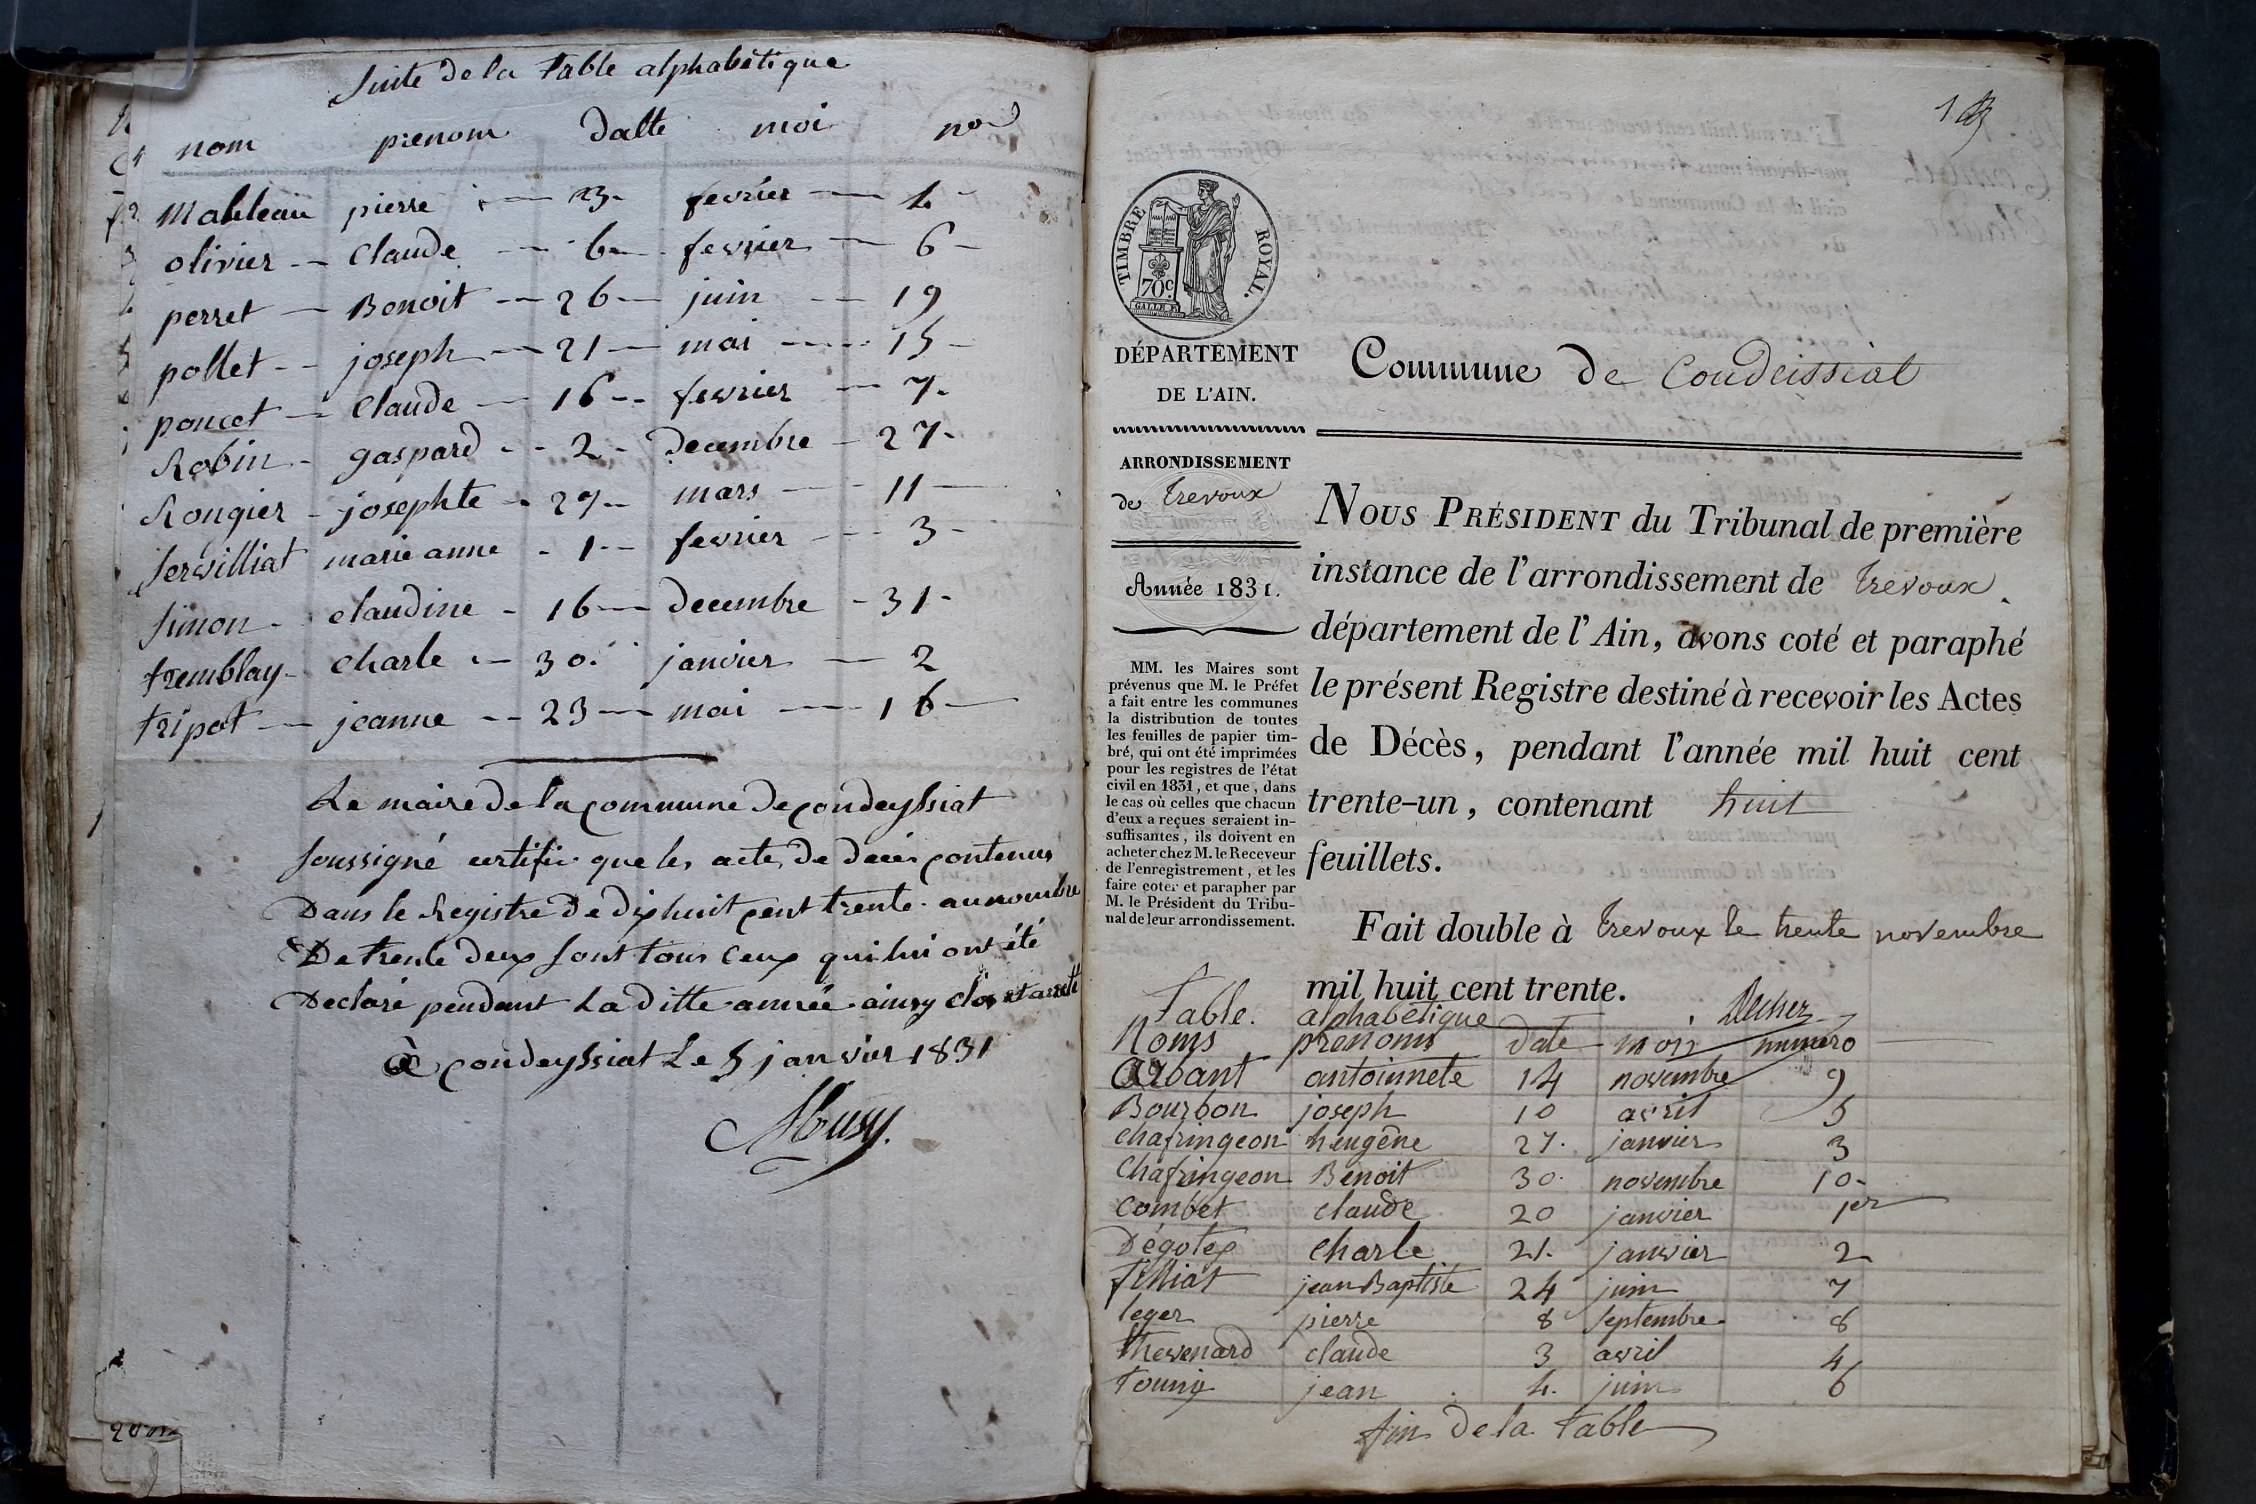 Suite de la table alphabétique
nom prenom datte moi no
Mableau pierre 3 fevrier 4
olivier claude 6 fevrier 6
perret Benoit 26 juin 19
pollet joseph 21 mai 15
poncet claude 16 fevrier 7
Robin gaspard 2 decembre 27
Rougier josephte 27 mars 11
Servilliat marie anne 1 fevrier 3
Simon claudine 16 decembre 31
tremblay charle 30 janvier 2
tripot jeanne 23 mai 16
Le maire de la commune de condeyssiat
soussigné certifie que les acte de décès contenus
Dans le Registre De dixhuit cent trente au nombre
De trente deux sont tous ceux qui lui ont été
Declaré pendant La Ditte année ainsy clos et arreté
à condeyssiat Le 5 janvier 1831
TIMBRE ROYAL.
70c.
GALLE F.
DÉPARTEMENT
DE L'AIN.
ARRONDISSEMENT
de Trevoux
Année 1831.
MM. les Maires sont
prévenus que M. le Préfet
a fait entre les communes
la distribution de toutes
les feuilles de papier tim-
bré, qui ont été imprimées
pour les registres de l'état
civil en 1831, et que, dans
le cas où celles que chacun
d'eux a reçues seraient in-
suffisantes, ils doivent en
acheter chez M. le Receveur
de l'enregistrement, et les
faire coter et parapher par
M. le Président du Tribu-
nal de leur arrondissement.
Commune de Condeissiat
NOUS PRÉSIDENT du Tribunal de première
instance de l'arrondissement de Trevoux
département de l'Ain, avons coté et paraphé
le présent Registre destiné à recevoir les Actes
de Décès, pendant l'année mil huit cent
trente-un, contenant huit
feuillets.
Fait double à Trevoux le trente novembre
mil huit cent trente.
Table. alphabétique
Noms prenoms date mois numero
Arbant antoinnete 14 novembre 9
Bourbon joseph 10 avril 5
chafringeon heugène 27. janvier 3
Chafringeon Benoit 30. novembre 10
combet claude 20 janvier 1er
Dégotex charle 21. janvier 2
filliat jean Baptiste 24 juin 7
leger pierre 8 septembre 8
thevenard claude 3 avril 4
touny jean 4. juin 6
fin de la table